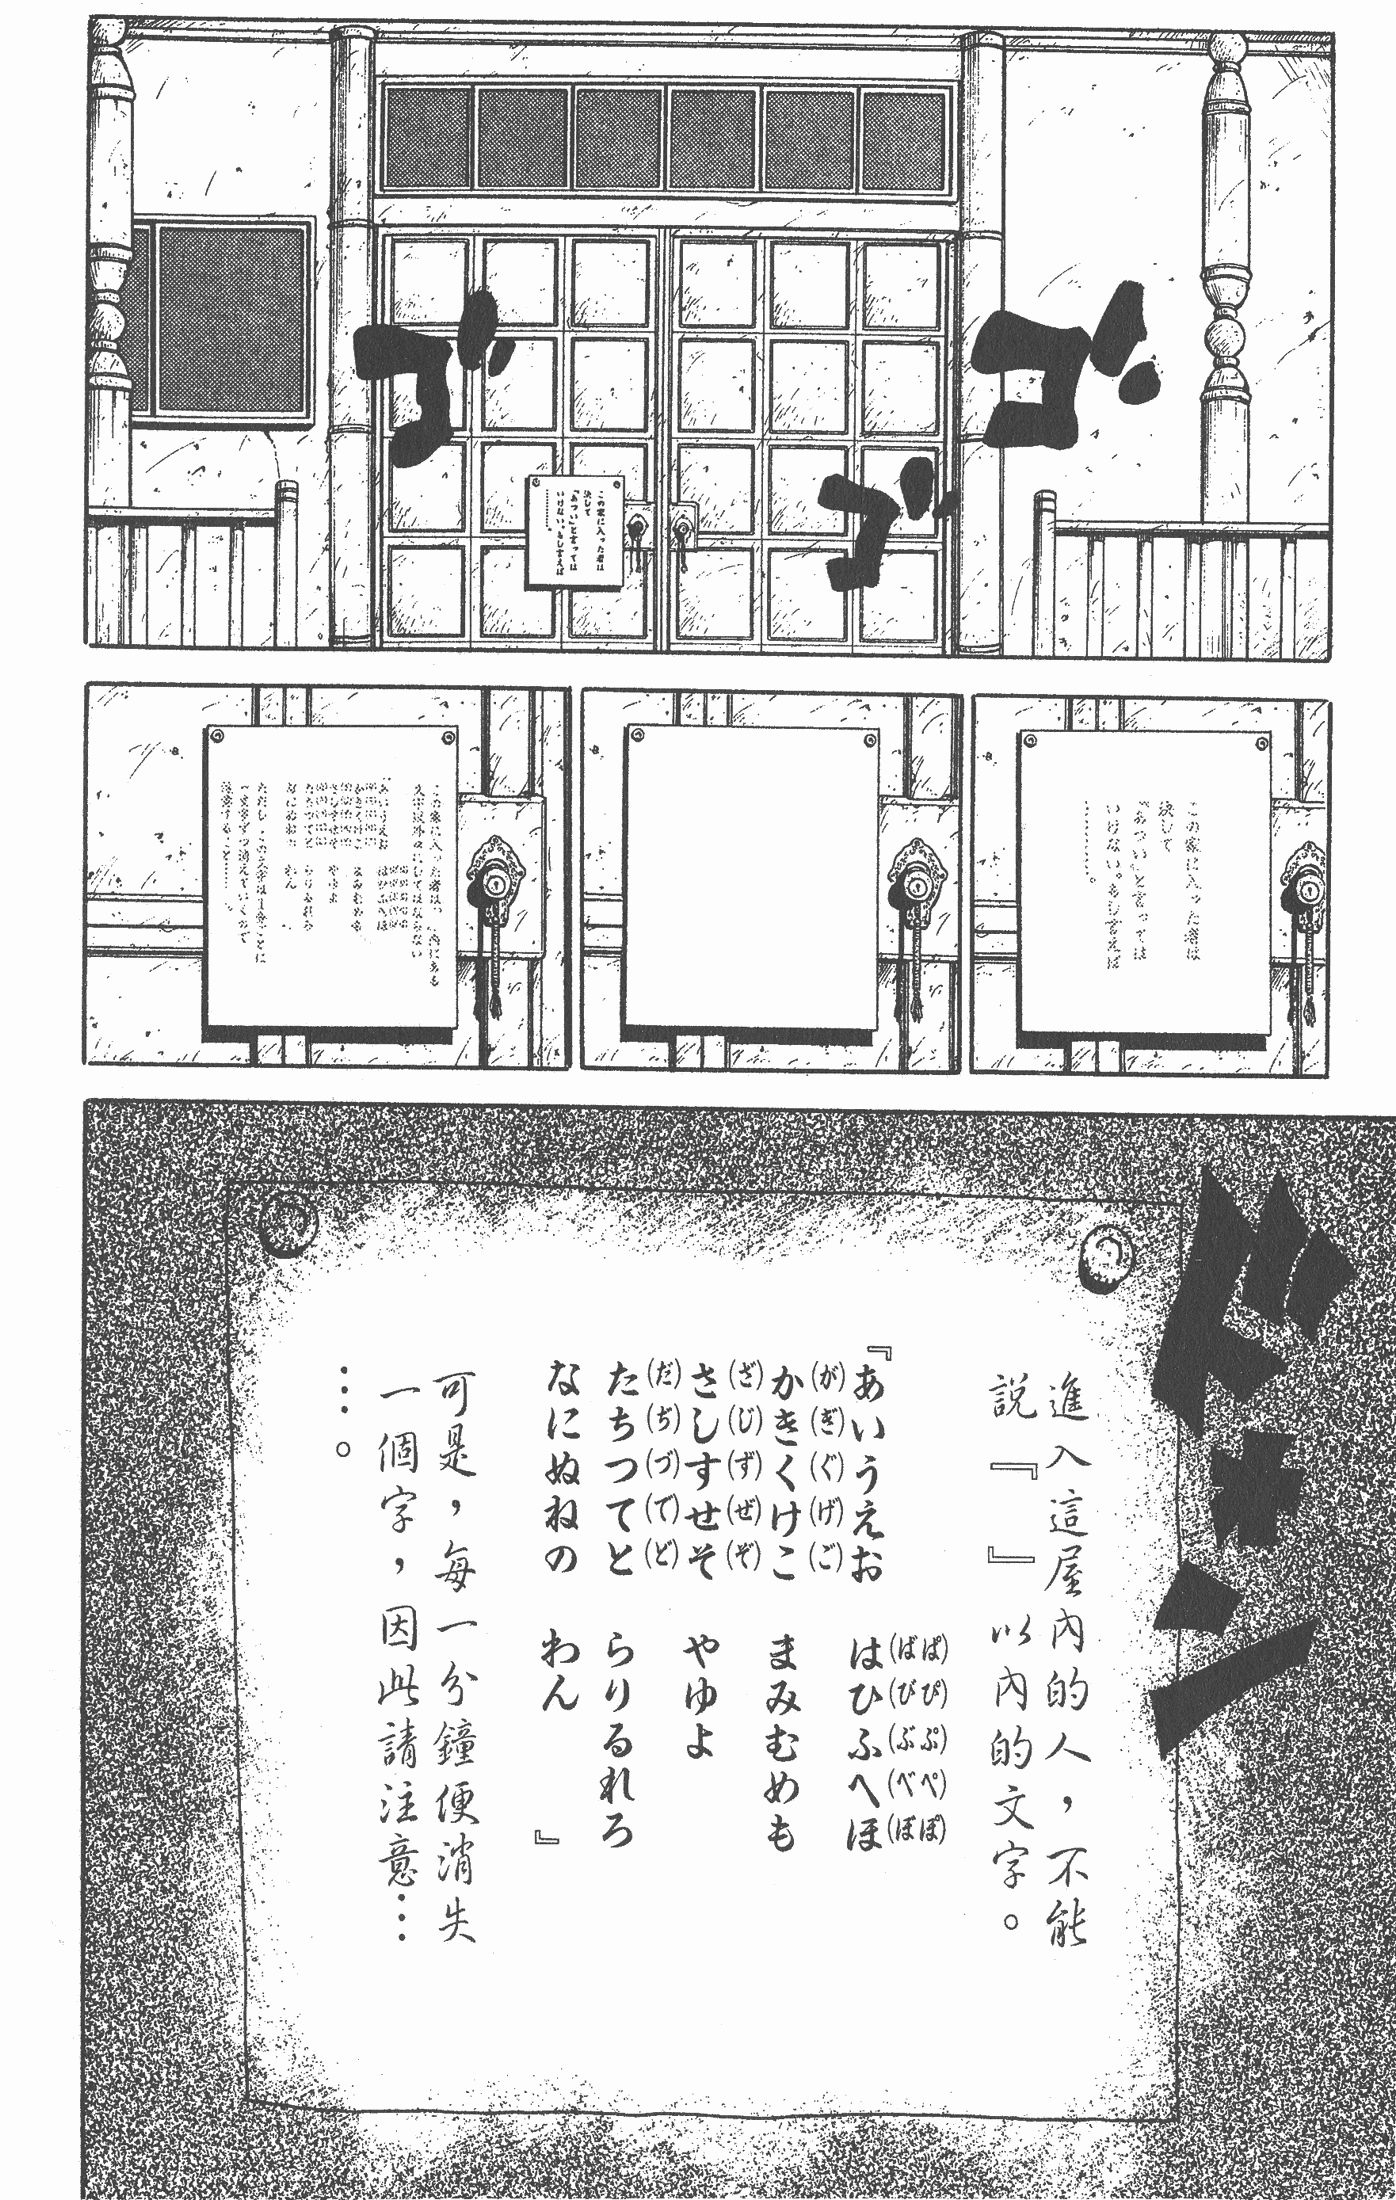 ゴ
ゴ
ゴ
この家に入った者は
決して
「あつい」と言っては
いけない。もし言えば
………。
この家に入った者は
決して
「あつい」と言っては
いけない。もし言えば
………。
ドギン
進入這屋內的人，不能
説『　』以內的文字。
『あいうえお
(がぎぐげご)
かきくけこ
(ざじずぜぞ)
さしすせそ
(だぢづでど)
たちつてと
なにぬねの
(ぱぴぷぺぽ)
(ばびぶべぼ)
はひふへほ
まみむめも
やゆよ
らりるれろ
わん　』
可是，每一分鐘便消失
一個字，因此請注意…
…。